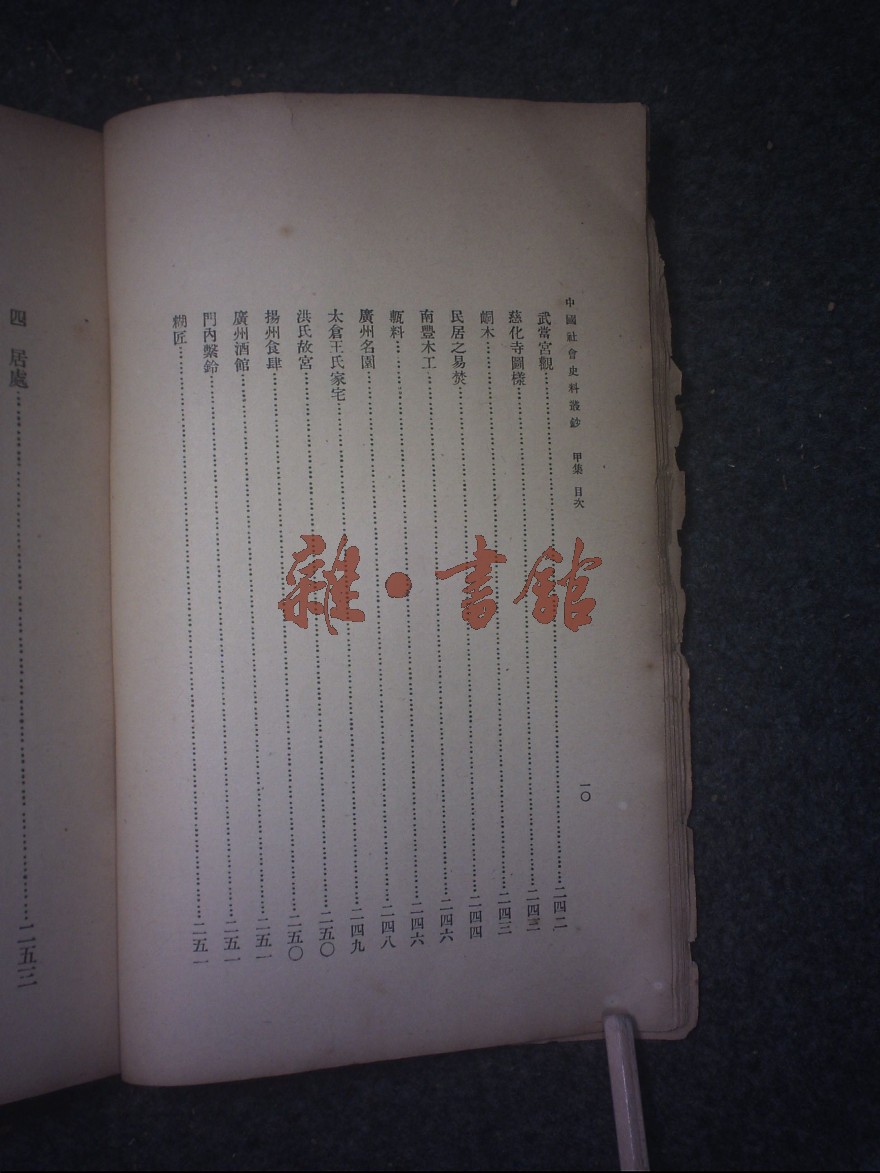 中國社會史料叢鈔 甲集 目次 一〇
武當宮觀……二四二
慈化寺圖樣……二四三
峒木……二四三
民居之易焚……二四四
南豐木工……二四六
甎料……二四六
廣州名園……二四八
太倉王氏家宅……二四九
洪氏故宮……二五〇
揚州食肆……二五〇
廣州酒館……二五一
門內繫鈴……二五一
糊匠……二五一
四 居處……二五三
雜·書館